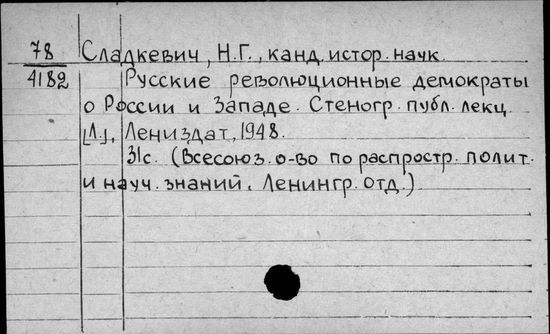 78 Сладкевич, Н.Г., канд. истор. наук.
4182 Русские революционные демократы
о России и Западе. Стеногр. публ. лекц.
[Л.], Лениздат, 1948.
31с. (Всесоюз. о-во по распростр. полит.
и науч. знаний. Ленингр. отд.)